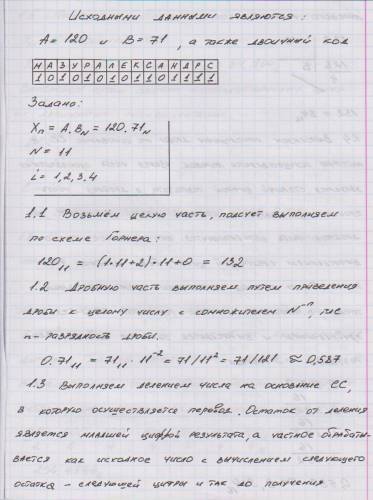 Исходными данными являются:
А = 120 и В = 71, а также двоичный код
Н А З У Р А Л Е К С А Н Д Р С
1 0 1 0 1 0 1 0 1 0 1 1 1 1
Задано:
Xₙ = A.B_N = 120.71_N
N = 11
i = 1,2,3.4
1.1 Возьмём целую часть, подсчет выполняем
по схеме Горнера:
120₁₁ = (1·11+2)·11+0 = 132
1.2 Дробную часть выполняем путем приведения
дроби к целому числу с сомножителем N⁻ⁿ, где
n - разрядность дроби.
0.71₁₁ = 71₁₁ · 11⁻² = 71/11² = 71/121 ≈ 0,587
1.3 Выполняем делением числа на основание СС,
в которую осуществляется перевод. Остаток от деления
является младшей цифрой результата, а частное обрабаты-
вается как исходное число с вычислением следующего
остатка - следующей цифры и так до получения